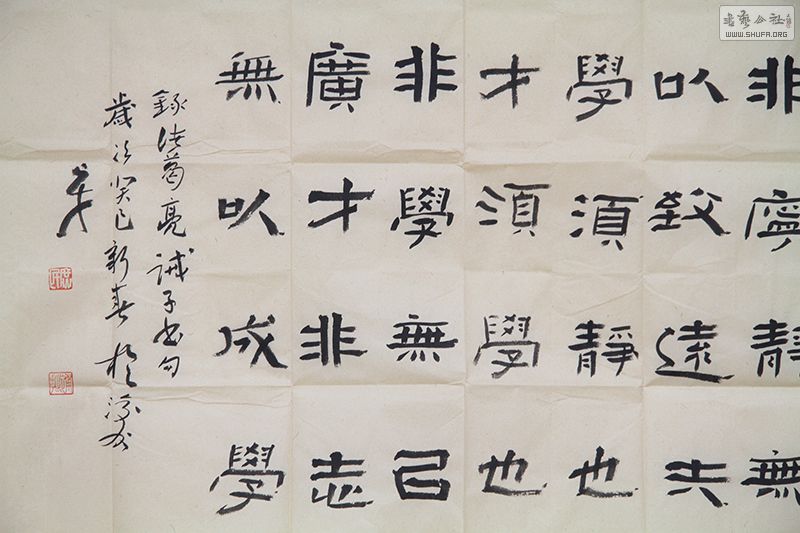 非寧靜無
以致遠夫
學須靜也
才須學也
非學無㠯
廣才非志
無以成學
錄諸葛亮誡子書句
歲次癸巳新春於
書藝公社
WWW.SHUFA.ORG